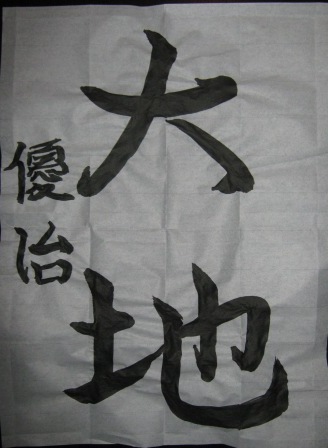 大地
優治